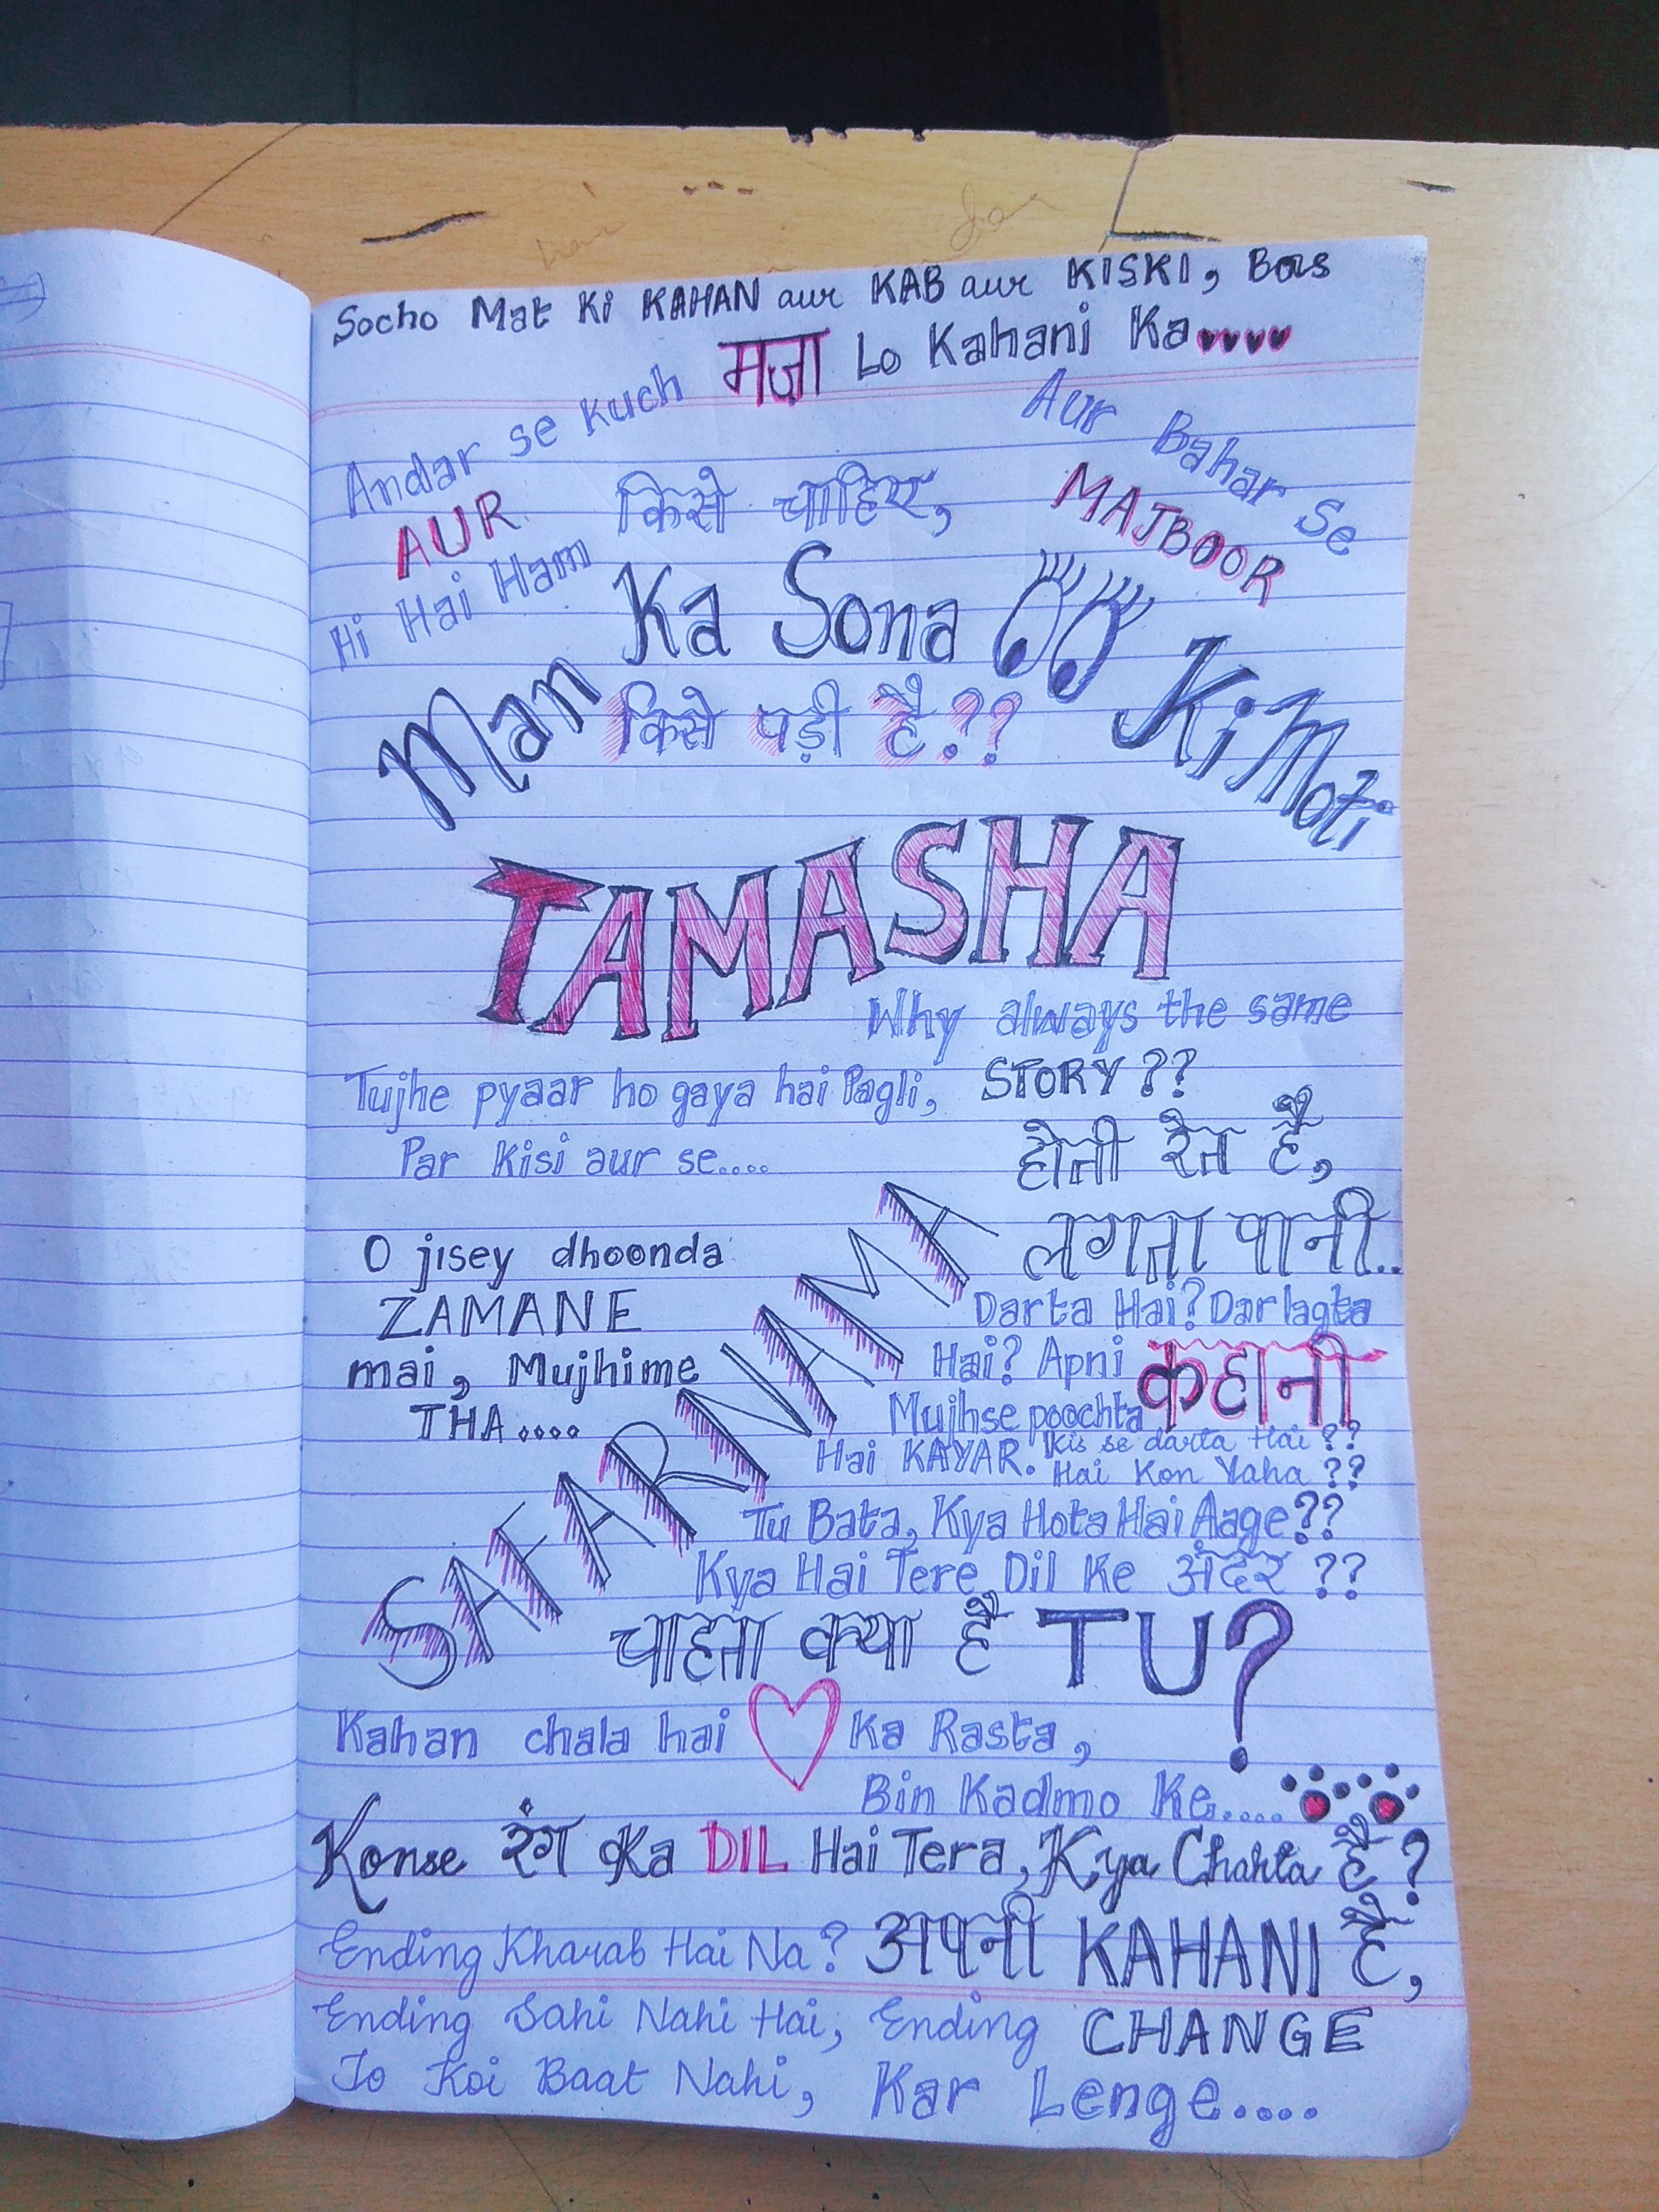 Socho Mat Ki KAHAN aur KAB aur KISKI, Bas
मज़ा Lo Kahani Ka
Andar se kuch
AUR
Hi Hai Ham
Aur Bahar Se
MAJBOOR
किसे चाहिए,
Man Ka Sona
Ki Moti
किसे पड़ी है??
TAMASHA
Why always the same
STORY??
Tujhe pyaar ho gaya hai Pagli,
Par Kisi aur se....
होती रेत है,
लगता पानी..
O jisey dhoonda
ZAMANE
mai, Mujhime
THA....
SAFARNAMA
Darta Hai? Dar lagta
Hai? Apni कहानी
Mujhse poochta
Hai KAYAR. Kis se darta Hai??
Hai Kon Yaha??
Tu Bata, Kya Hota Hai Aage??
Kya Hai Tere Dil Ke अंदर??
चाहता क्या है TU?
Kahan chala hai Ka Rasta,
Bin Kadmo Ke....
Konse रंग Ka DIL Hai Tera, Kya Chahta है?
Ending Kharab Hai Na? अपनी KAHANI है,
Ending Sahi Nahi Hai, Ending CHANGE
To Koi Baat Nahi, Kar Lenge....